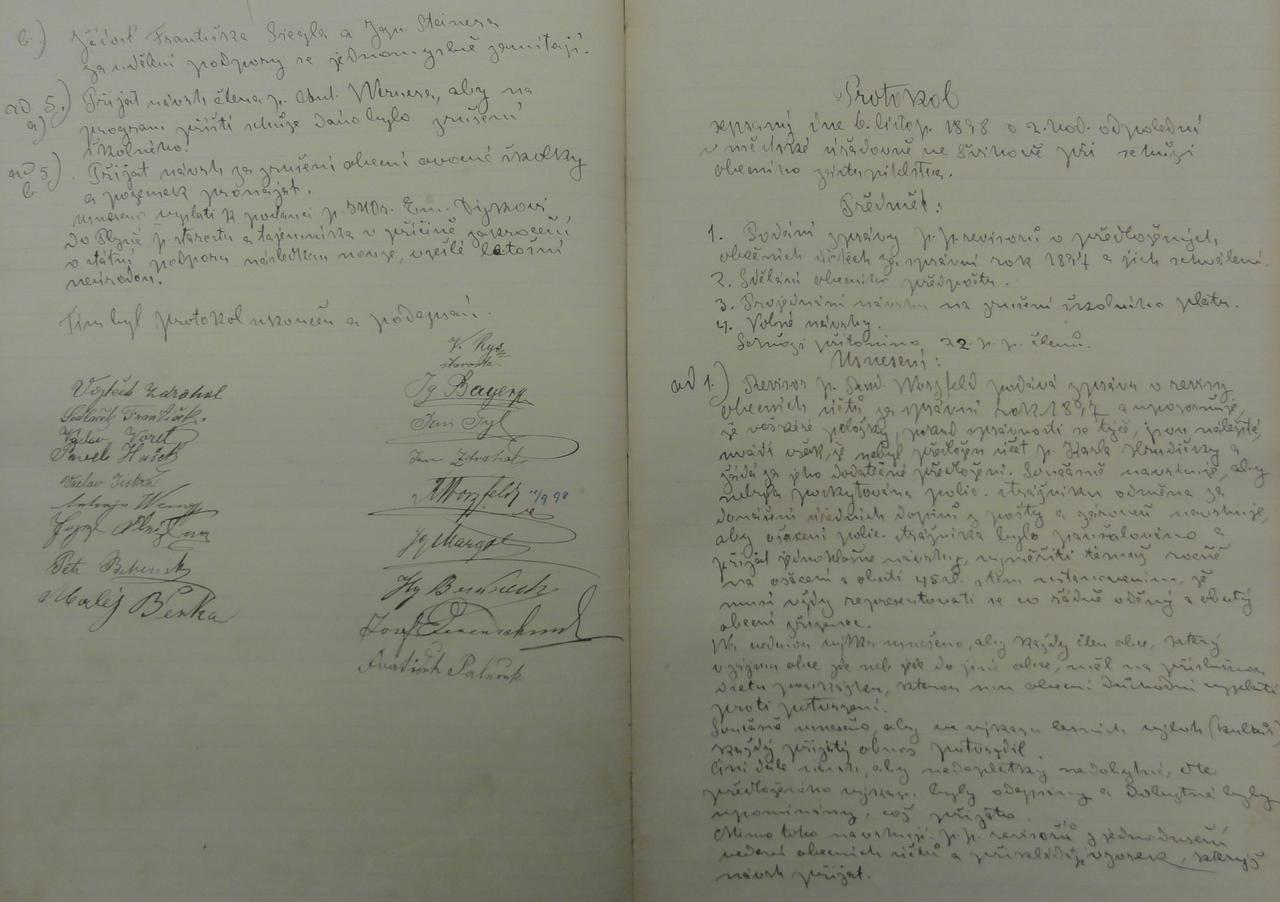 b.) Žádosť Františka Siegla a Ign. Steinera
za udělení podpory se jednomyslně zamítají.
ad 5.) a) Přijat návrh člena p. Ant. Wernera, aby na
program příští schůze dáno bylo zrušení
školného.
ad 5) b. Přijat návrh za zrušení obecní ovocné školky
a pozemek pronajat.
Usneseno vyplatit k podanci p. JUDr. Em.
do Plzně p. starostu a tajemníka v příčině zakročení
o státní podporu následkem nouze, vzešlé letošní
neúrodou.
Tím byl protokol ukončen a podepsán.
V. Rys
starosta.
Vojtěch Zdrahal
Sedláček František.
Václav Voret
Pavel Hušek
Václav Jiskra
Antonín
Josef
Petr
Matěj Berka
Ig Bayer
Jan Tyl
Jan Zdrahal
Worzfeld 11/9 98
Ig Margot
Ig
Josef
František
Protokol
sepsaný dne 6. listop. 1898 o 2. hod. odpolední
v městské úřadovně ve Švihově při schůzi
obecního zastupitelstva.
Předmět:
1. Podání zprávy p. p. revisorů o předložených
obecních účtech za správní rok 1897 a jich schválení.
2. Sdělání obecního předpočtu.
3. Projednání návrhu na zrušení školního platu.
4. Volné návrhy.
Schůzi přítomno 22 p. p. členů.
Usnešení:
ad 1.) Revisor p. Ferd. Worzfeld podává zprávu o revisi
obecních účtů za správní rok 1897 a upozorňuje,
že veškeré položky, pokud správnosti se týče, jsou náležité,
uvádí však, že nebyl předložen účet p. Karla Hrudičky a
žádá za jeho dodatečné předložení. Současně navrhuje, aby
nebyla poskytována polic. strážníku odměna za
donášení úředních dopisů z pošty a zároveň navrhuje,
aby ošacení polic. strážníka bylo paušalováno a
přijat jednohlasně návrh, vyměřiti témuž ročně
na ošacení a obutí 45 zl. s tím ustanovením, že
musí vždy representovati se co řádně oděný a obutý
obecní zřízenec.
Na uvedenou výtku usneseno, aby každý člen obce, který
v zájmu obce jde neb jede do jiné obce, měl na příslušnou
dietu poukázku, kterou mu obecní důchodní vyplatí
proti potvrzení.
Současně usneseno, aby ve výkazu lesních výloh (kultur)
každý přijatý obnos potvrdil.
Činí dále návrh, aby nedoplatky nedobytné, dle
předloženého výkazu byly odepsány a dobytné byly
upomínány, což přijato.
Mimo toho navrhují p. p. revisorů zjednodušení
vedení obecních účtů a přikládají vzorek, kterýž
návrh přijat.